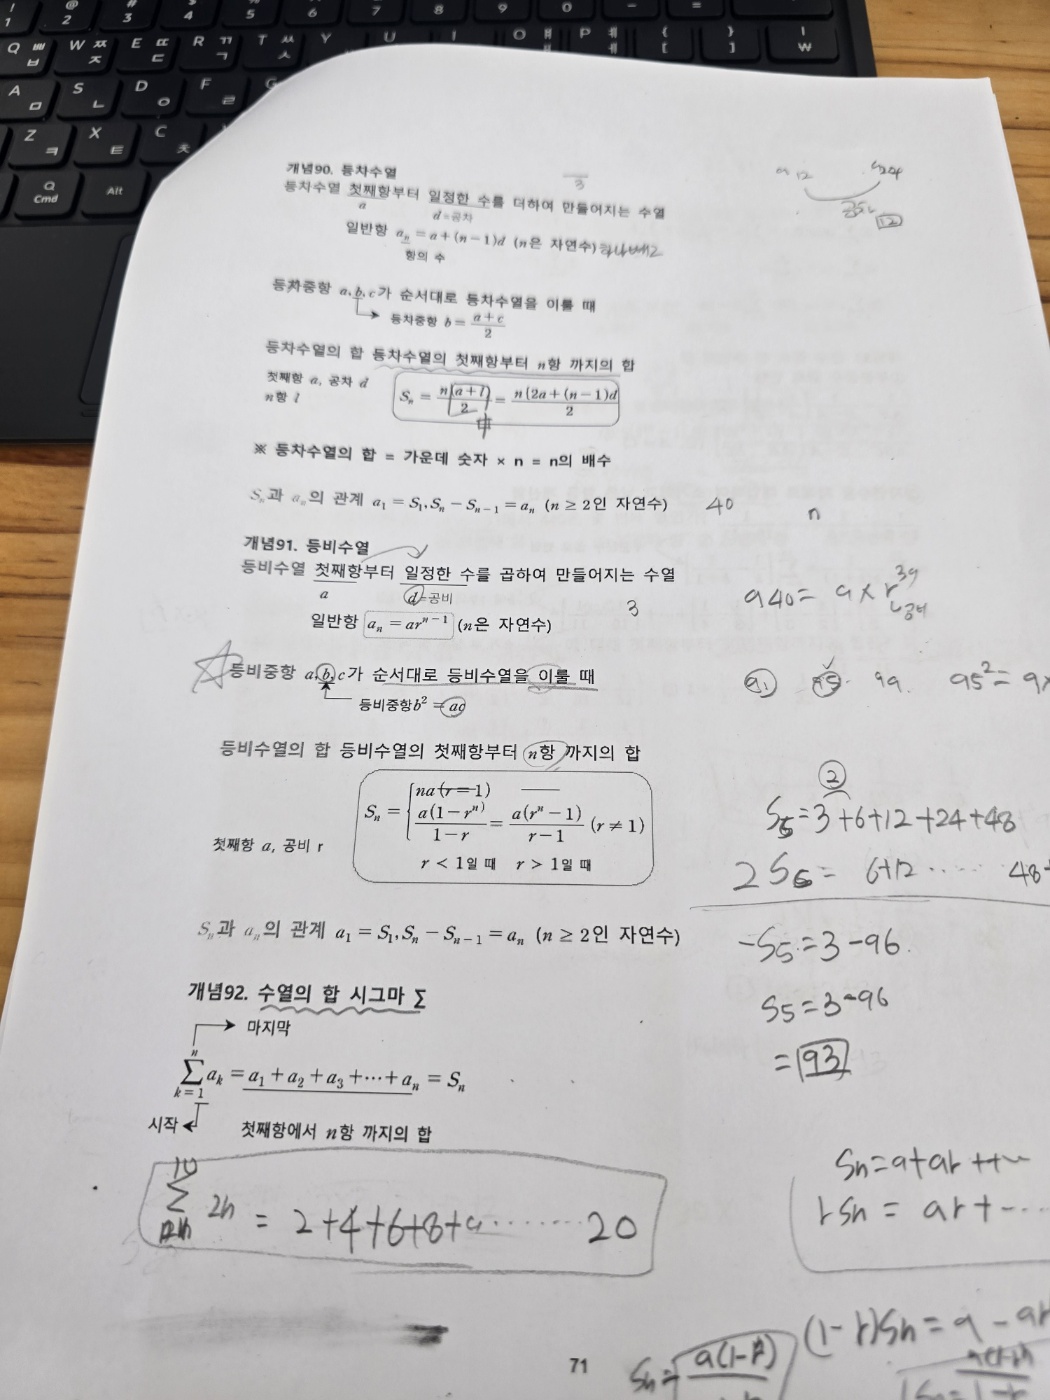 개념90. 등차수열
등차수열 첫째항부터 일정한 수를 더하여 만들어지는 수열
a d=공차
일반항 aₙ = a + (n−1)d (n은 자연수) 하나빼고
항의 수
등차중항 a, b, c가 순서대로 등차수열을 이룰 때
등차중항 b = (a+c)/2
등차수열의 합 등차수열의 첫째항부터 n항 까지의 합
첫째항 a, 공차 d
n항 l
Sₙ = n(a+l)/2 = n{2a+(n−1)d}/2
中
※ 등차수열의 합 = 가운데 숫자 × n = n의 배수
Sₙ과 aₙ의 관계 a₁ = S₁, Sₙ − Sₙ₋₁ = aₙ (n ≥ 2인 자연수)
40 n
개념91. 등비수열
등비수열 첫째항부터 일정한 수를 곱하여 만들어지는 수열
a d=공비
3
일반항 aₙ = arⁿ⁻¹ (n은 자연수)
a40 = a × r³⁹
공비
등비중항 a, b, c가 순서대로 등비수열을 이룰 때
등비중항 b² = ac
a₁ a5 a9 a5² = a
등비수열의 합 등비수열의 첫째항부터 n항 까지의 합
첫째항 a, 공비 r
Sₙ = { na (r = 1)
a(1−rⁿ)/(1−r) = a(rⁿ−1)/(r−1) (r ≠ 1)
r < 1일 때 r > 1일 때
②
S5 = 3+6+12+24+48
2S5 = 6+12 ····· 48+
−S5 = 3−96
S5 = 3−96
= 93
Sₙ과 aₙ의 관계 a₁ = S₁, Sₙ − Sₙ₋₁ = aₙ (n ≥ 2인 자연수)
개념92. 수열의 합 시그마 ∑
마지막
n
∑ aₖ = a₁ + a₂ + a₃ + ⋯ + aₙ = Sₙ
k = 1
시작 첫째항에서 n항 까지의 합
10
∑ 2n = 2+4+6+8+ ······· 20
Sn = a+ar+
rSn = ar+ ···
(1−r)Sn = a − ar
Sn = a(1−rⁿ)
71